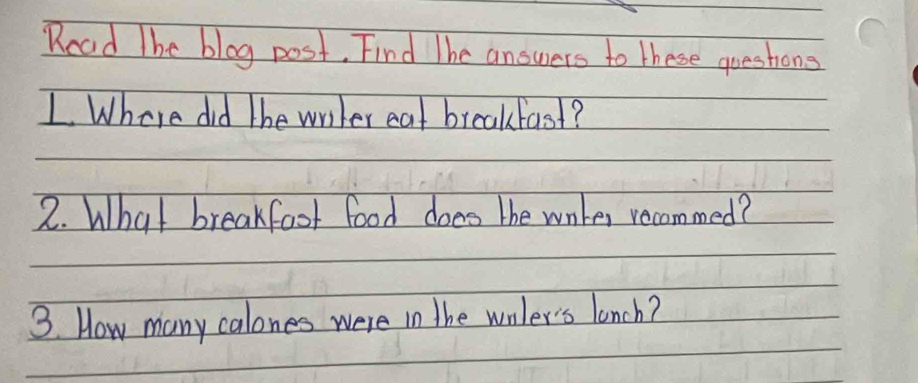 Read the blog post. Find the answers to these questions
1. Where did the writer eat breakfast?
2. What breakfast food does the writer recommed?
3. How many calories were in the writer's lunch?